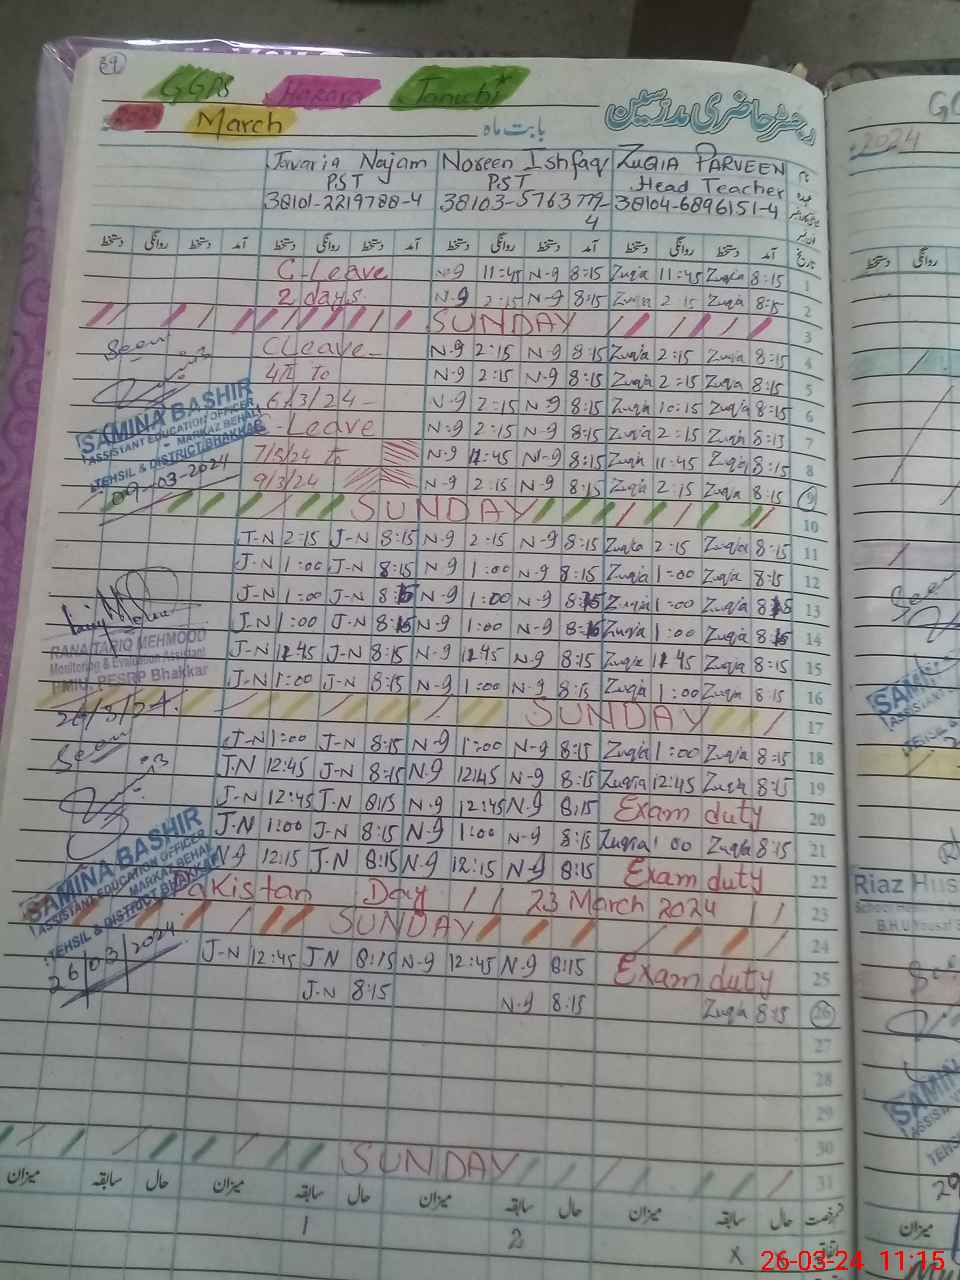 39
GGPS Hazara Janubi
2024 March بابت ماہ رجسٹر حاضری مدرسین
Javaria Najam Noreen Ishfaq Zuqia Parveen
PST PST Head Teacher
38101-2219788-4 38103-5763779-4 38104-6896151-4
دستخط روانگی دستخط آمد دستخط روانگی دستخط آمد دستخط روانگی دستخط آمد تاریخ
C-Leave N-9 11:45 N-9 8:15 Zuqia 11:45 Zuqia 8:15 1
2 days. N-9 2:15 N-9 8:15 Zuqia 2:15 Zuqia 8:15 2
SUNDAY 3
Seen CLeave N-9 2:15 N-9 8:15 Zuqia 2:15 Zuqia 8:15 4
To N-9 2:15 N-9 8:15 Zuqia 2:15 Zuqia 8:15 5
6/3/24 N-9 2:15 N-9 8:15 Zuqia 10:15 Zuqia 8:15 6
-Leave N-9 2:15 N-9 8:15 Zuqia 2:15 Zuqia 8:13 7
7/3/24 to N-9 11:45 N-9 8:15 Zuqia 11:45 Zuqia 8:15 8
9/3/24 N-9 2:15 N-9 8:15 Zuqia 2:15 Zuqia 8:15 9
SAMINA BASHIR
ASSISTANT EDUCATION OFFICER
MARKAZ BEHAL
TEHSIL & DISTRICT BHAKKAR
09-03-2024
SUNDAY 10
J-N 2:15 J-N 8:15 N-9 2:15 N-9 8:15 Zuqia 2:15 Zuqia 8:15 11
J-N 1:00 J-N 8:15 N-9 1:00 N-9 8:15 Zuqia 1:00 Zuqia 8:15 12
J-N 1:00 J-N 8:15 N-9 1:00 N-9 8:15 Zuqia 1:00 Zuqia 8:15 13
J-N 1:00 J-N 8:15 N-9 1:00 N-9 8:15 Zuqia 1:00 Zuqia 8:15 14
J-N 11:45 J-N 8:15 N-9 11:45 N-9 8:15 Zuqia 11:45 Zuqia 8:15 15
J-N 1:00 J-N 8:15 N-9 1:00 N-9 8:15 Zuqia 1:00 Zuqia 8:15 16
RANA TARIQ MEHMOOD
Monitoring & Evaluation Assistant
PMIU, PESRP Bhakkar
SUNDAY 17
Seen J-N 1:00 J-N 8:15 N-9 1:00 N-9 8:15 Zuqia 1:00 Zuqia 8:15 18
J.N 12:45 J-N 8:15 N.9 12:45 N-9 8:15 Zuqia 12:45 Zuqia 8:15 19
J-N 12:45 J.N 8:15 N.9 12:45 N.9 8:15 Exam duty 20
J.N 1:00 J-N 8:15 N-9 1:00 N-9 8:15 Zuqia 1:00 Zuqia 8:15 21
N-9 12:15 J.N 8:15 N-9 12:15 N-9 8:15 Exam duty 22
Pakistan Day 23 March 2024 23
SUNDAY 24
SAMINA BASHIR
ASSISTANT EDUCATION OFFICER
MARKAZ BEHAL
TEHSIL & DISTRICT BHAKKAR
26/03/2024
J-N 12:45 J.N 8:15 N-9 12:45 N-9 8:15 Exam duty 25
J-N 8:15 N-9 8:15 Zuqia 8:15 26
27
28
29
30
SUNDAY 31
میزان سابقہ حال میزان سابقہ حال میزان سابقہ حال میزان سابقہ حال
1 2 x
2024
دستخط روانگی
Seen
Riaz Hus
B.H.U
میزان
26-03-24 11:15